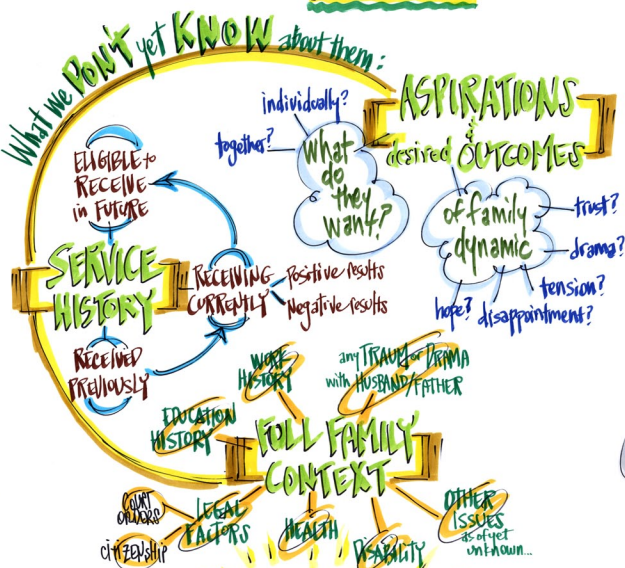 What we DON'T yet KNOW about them:
ASPIRATIONS
&
desired OUTCOMES
individually?
together?
What
do
they
want?
of family
dynamic
trust?
drama?
tension?
disappointment?
hope?
ELIGIBLE to
RECEIVE
in FUTURE
SERVICE
HISTORY
RECEIVING
CURRENTLY
Positive results
Negative results
RECEIVED
PREVIOUSLY
WORK
HISTORY
any TRAUMA or DRAMA
with HUSBAND/FATHER
EDUCATION
HISTORY
FULL FAMILY
CONTEXT
COURT
ORDERS
LEGAL
FACTORS
CITIZENSHIP
HEALTH
DISABILITY
OTHER
ISSUES
as of yet
unknown...